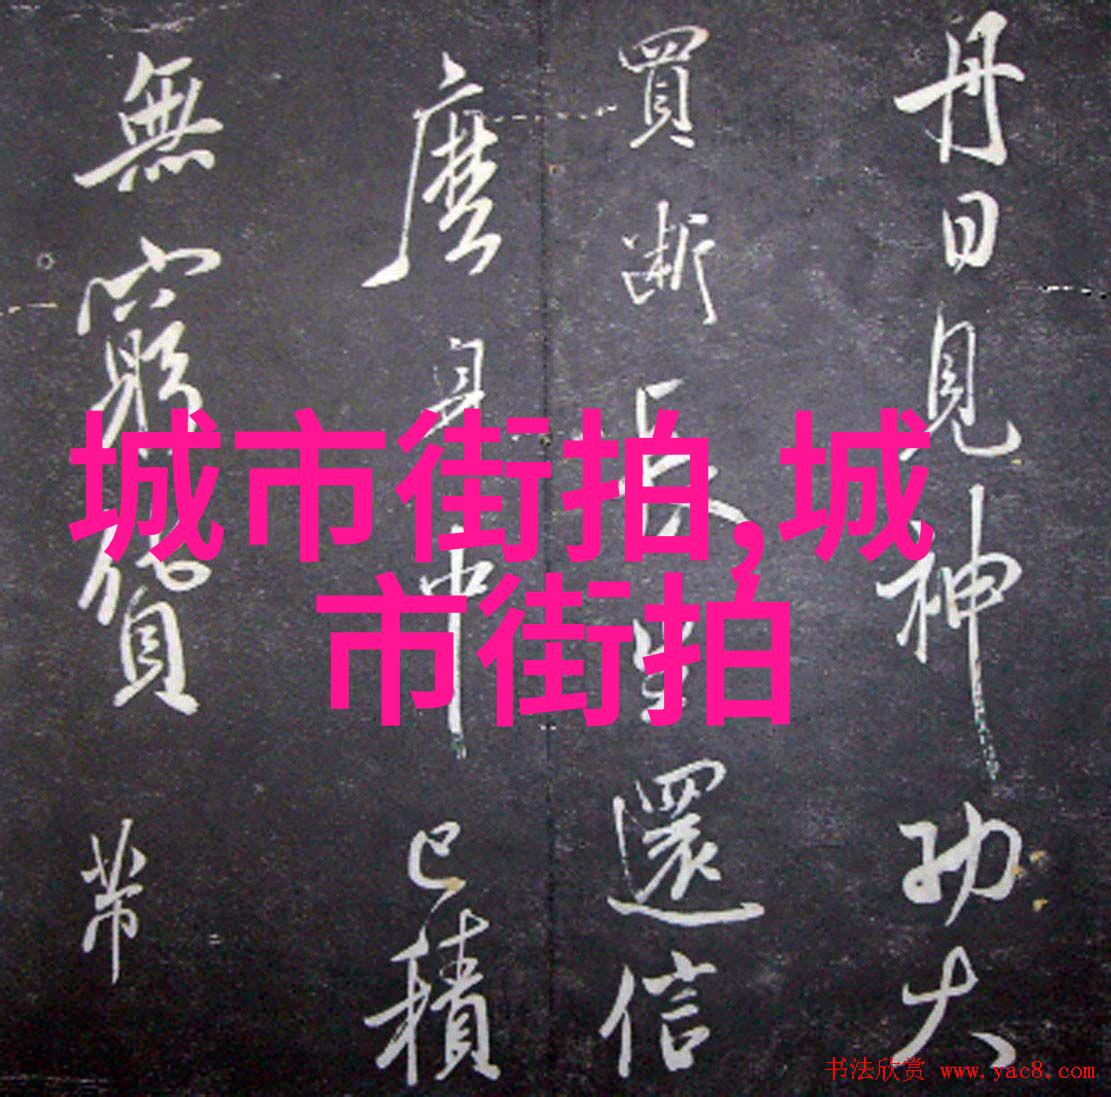 丹日見神功大
買斷長生還信
身中已積
無窮貨
城市街拍,城
市街拍
书法欣赏 www.yac8.com